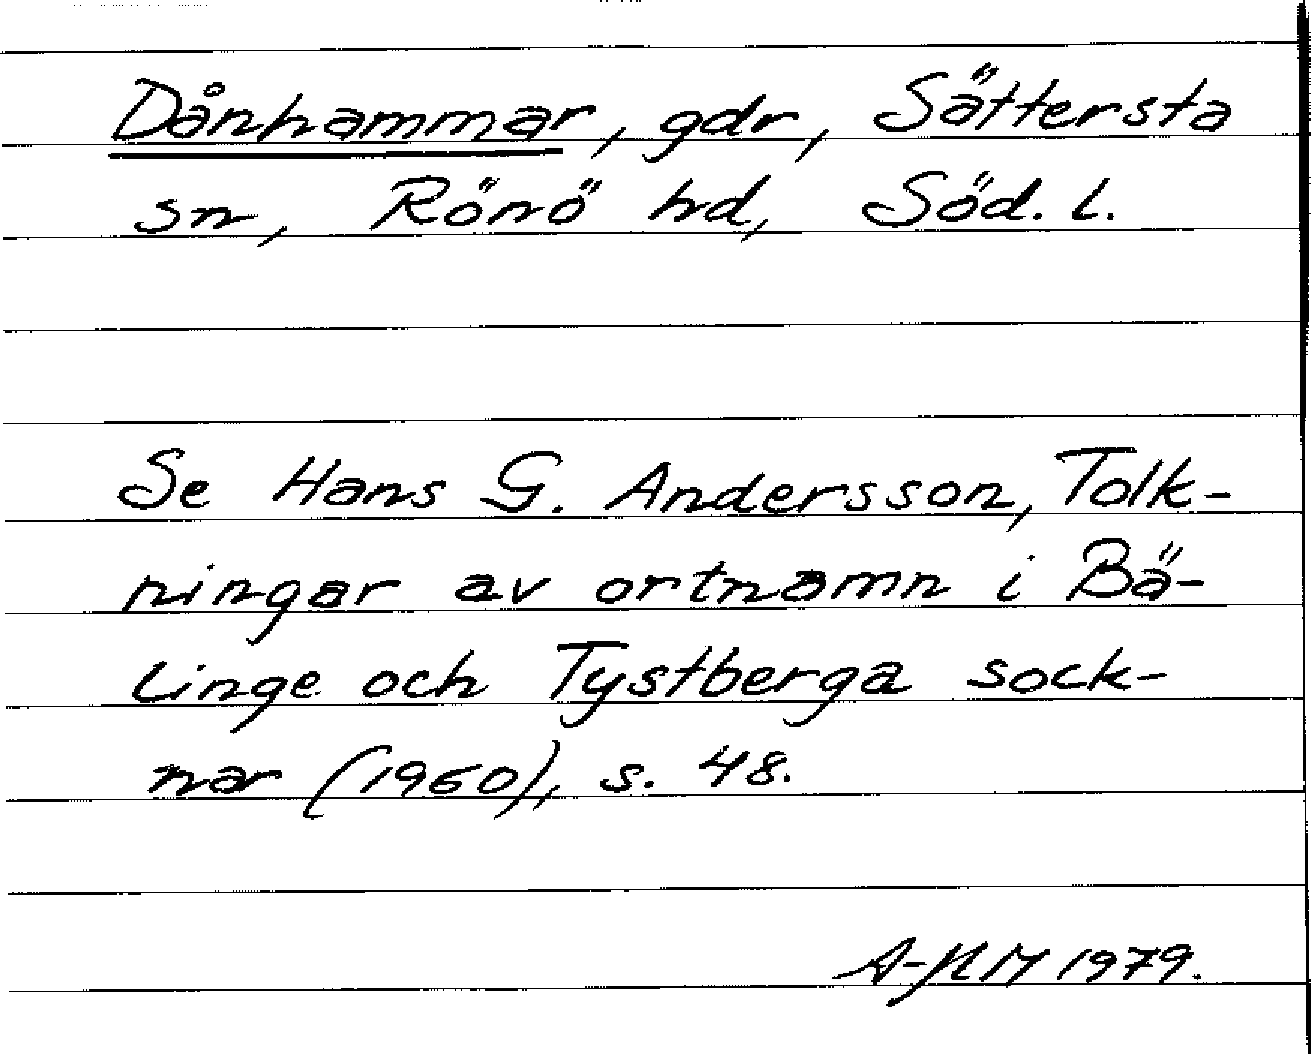 Dånhammar, gdr, Sättersta
sn, Rönö hd, Söd. l.
Se Hans G. Andersson, Tolk-
ningar av ortnamn i Bä-
linge och Tystberga sock-
nar (1960), s. 48.
A-NM 1979.